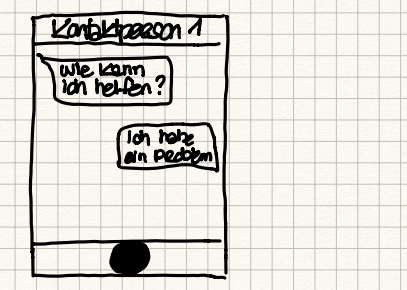 Kontaktperson 1
Wie kann
ich helfen?
Ich habe
ein Problem